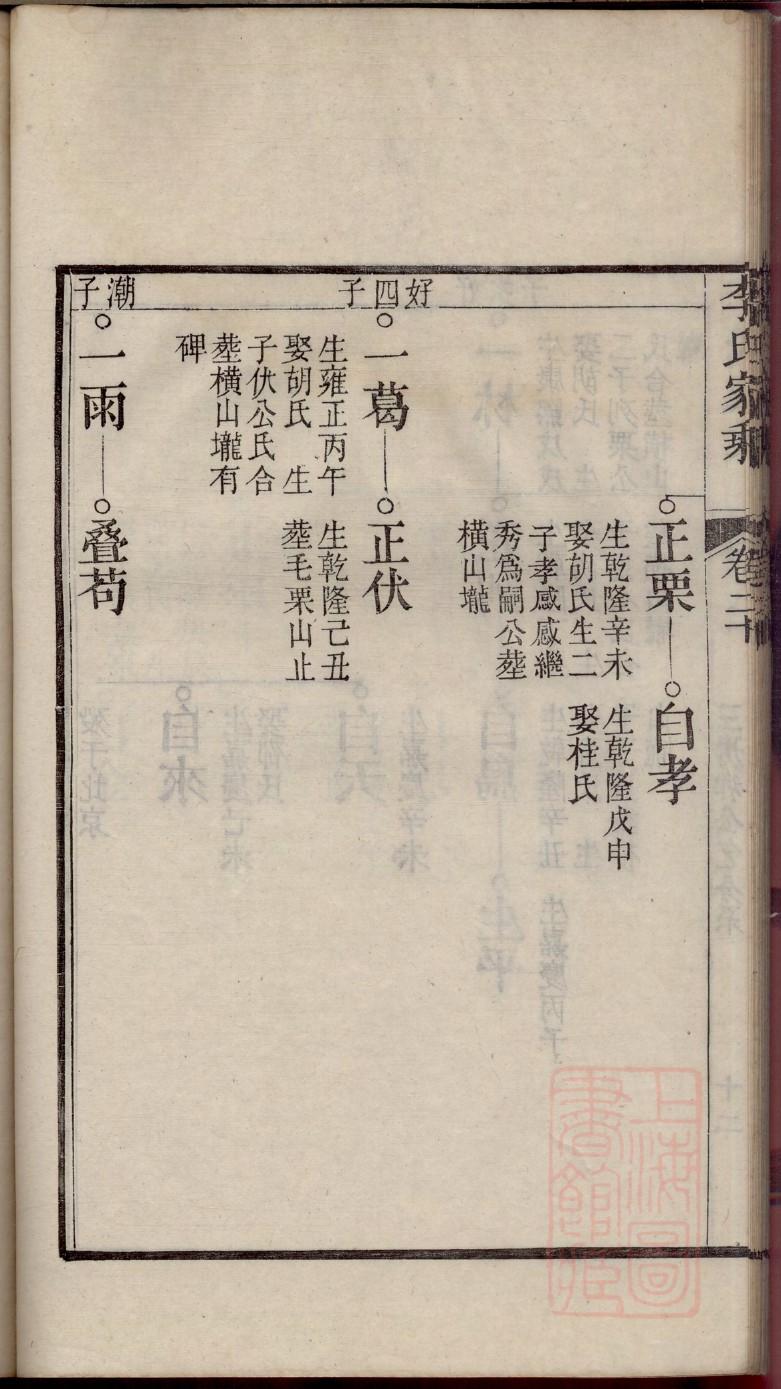 李氏家乘
卷二十
正栗
生乾隆辛未
娶胡氏生二
子孝感感繼
秀爲嗣公塟
橫山壠
自孝
生乾隆戊申
娶桂氏
好四子
一葛
生雍正丙午
娶胡氏 生
子伏公氏合
塟橫山壠有
碑
正伏
生乾隆己丑
塟毛栗山止
潮子
一雨
叠苟
上海圖
書館藏